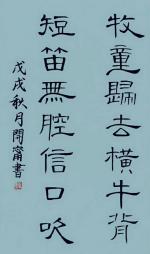 牧童歸去橫牛背
短笛無腔信口吹
戊戌秋月開甯書